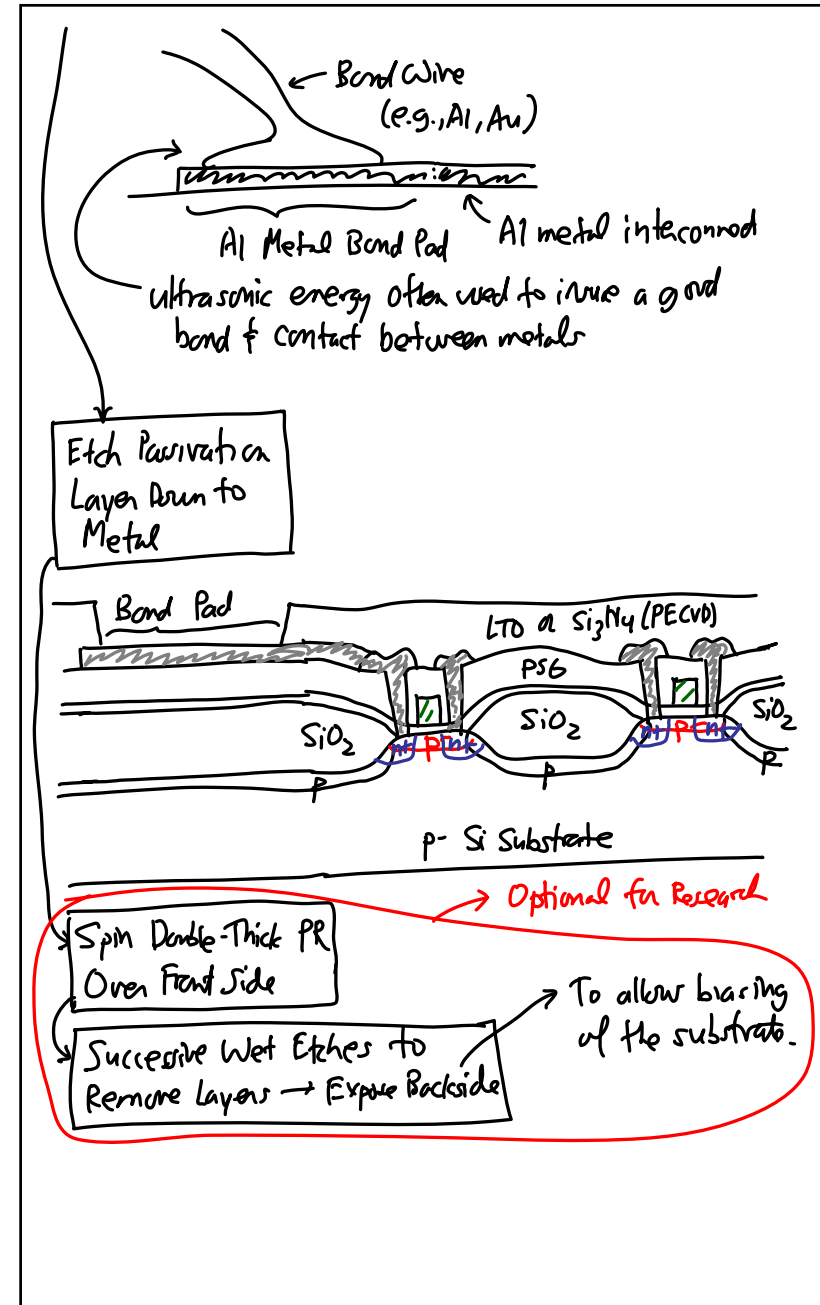 Bond Wire
(e.g., Al, Au)
Al Metal Bond Pad
Al metal interconnect
ultrasonic energy often used to insure a good
bond & contact between metals
Etch Passivation
Layer Down to
Metal
Bond Pad
LTO or Si3N4 (PECVD)
PSG
SiO2
SiO2
SiO2
n+ p n+
n+ p n+
p
p
p
p- Si Substrate
Optional for Research
Spin Double-Thick PR
Over Front Side
To allow biasing
of the substrate.
Successive Wet Etches to
Remove Layers → Expose Backside